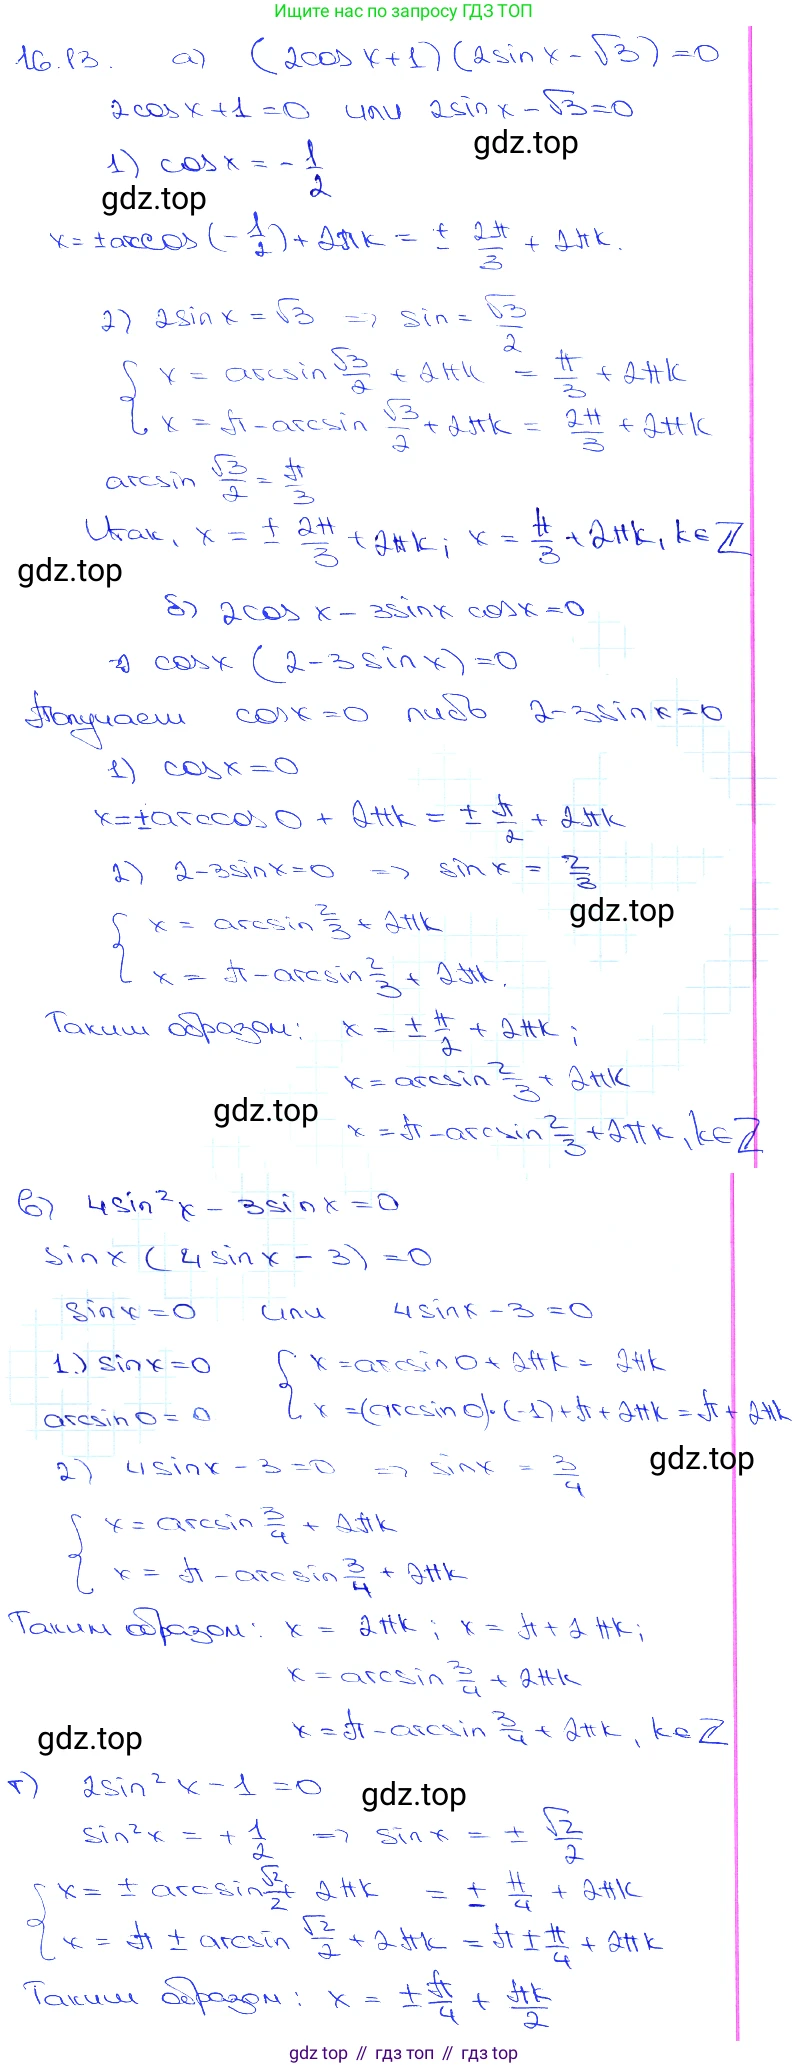 Ищите нас по запросу ГДЗ ТОП
16.13. а) (2cos x+1)(2sin x-√3)=0
2cos x+1=0 или 2sin x-√3=0
gdz.top
1) cos x = -1/2
gdz.top
x=±arccos(-1/2)+2πk = ± 2π/3 + 2πk.
2) 2sin x = √3 => sin = √3/2
{ x = arcsin √3/2 + 2πk = π/3 + 2πk
x = π-arcsin √3/2 + 2πk = 2π/3 + 2πk
arcsin √3/2 = π/3
Итак, x = ± 2π/3 + 2πk; x = π/3 + 2πk, k∈Z
gdz.top
б) 2cos x - 3sin x cos x=0
cos x (2-3sin x)=0
Получаем cos x=0 либо 2-3sin x=0
1) cos x=0
x=±arccos 0 + 2πk = ± π/2 + 2πk
2) 2-3sin x=0 => sin x = 2/3
gdz.top
{ x = arcsin 2/3 + 2πk
x = π-arcsin 2/3 + 2πk.
Таким образом: x = ± π/2 + 2πk;
x=arcsin 2/3 + 2πk
gdz.top
x = π-arcsin 2/3 + 2πk, k∈Z
в) 4sin²x - 3sin x=0
sin x (4sin x - 3)=0
sin x=0 или 4sin x-3=0
1) sin x=0 { x=arcsin 0 + 2πk = 2πk
arcsin 0=0 x =(arcsin 0)·(-1)+π+2πk=π+2πk
2) 4sin x-3=0 => sin x = 3/4
gdz.top
{ x=arcsin 3/4 + 2πk
x = π-arcsin 3/4 + 2πk
Таким образом: x = 2πk; x = π+2πk;
x=arcsin 3/4 + 2πk
x=π-arcsin 3/4 + 2πk, k∈Z
gdz.top
г) 2sin²x-1=0
gdz.top
sin²x = +1/2 => sin x = ± √2/2
{ x= ± arcsin √2/2 + 2πk = ± π/4 + 2πk
x= π ± arcsin √2/2 + 2πk = π ± π/4 + 2πk
Таким образом: x = ± π/4 + πk/2
gdz top // гдз топ // гдз.топ